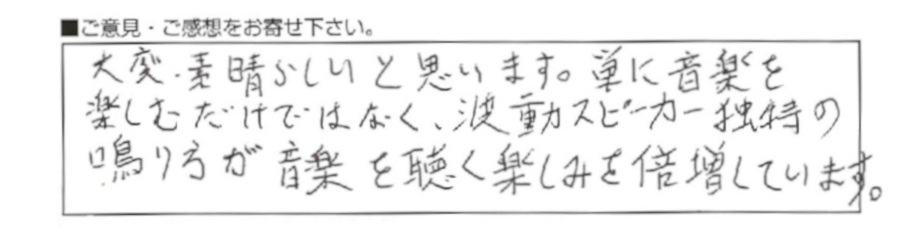 ■ご意見・ご感想をお寄せ下さい。
大変、素晴らしいと思います。単に音楽を
楽しむだけではなく、波動スピーカー独特の
鳴り方が音楽を聴く楽しみを倍増しています。